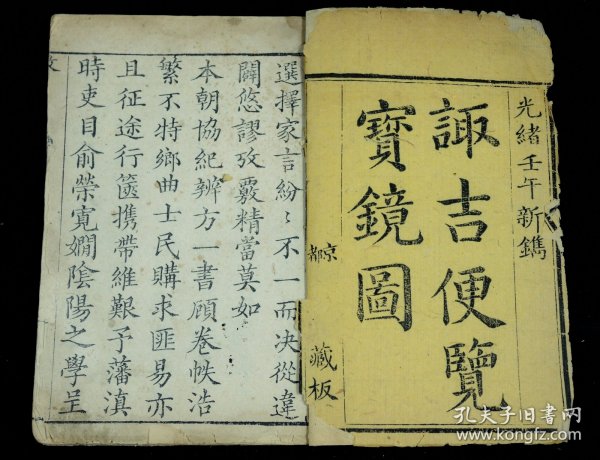 光緒壬午新鐫
諏吉便覽
寶鏡圖
京都
藏板
選擇家言紛〻不一而決從違
闢悠謬攷覈精當莫如
本朝協紀辨方一書顧卷帙浩
繁不特鄉曲士民購求匪易亦
且征途行篋携帶維艱予藩滇
時吏目俞榮寬嫺陰陽之學呈
孔夫子旧书网
www.kongfz.com